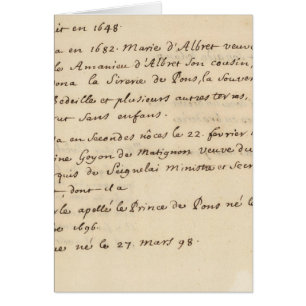 it en 1648.
a en 1682. Marie d'Albret veuv
les Amanieu d'Albret son cousin,
ona la Sirerie de Pons, la souver
Bedeille et plusieurs autres terres,
ut sans enfans.
a en secondes nôces le 22. fevrier
ine Goyon de Matignon veuve du
quis de Seignelai Ministre et Secr
t, dont il a
rle appellé le Prince de Pons né le
e 1696.
ue né le 27. Mars 98.